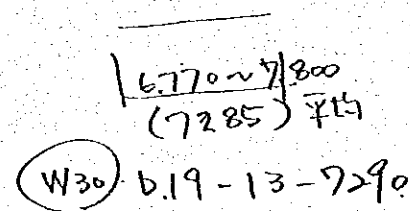 6.770～7.800
(7285) 平均
W30 D.19-13-7290